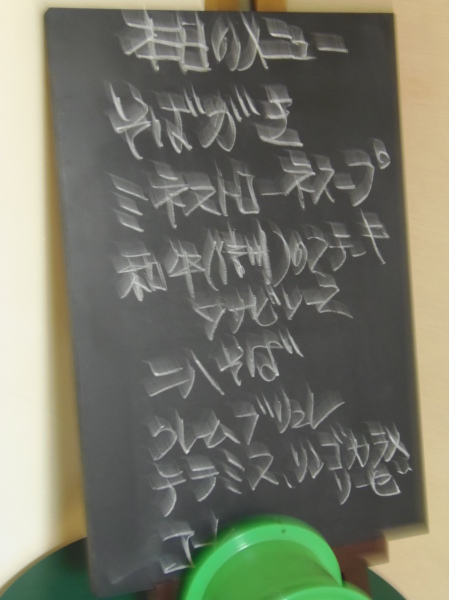 本日のメニュー
そばがき
ミネストローネスープ
和牛()のステーキ
ワサビソース
二八そば
クレームブリュレ
テラミス、リンゴ